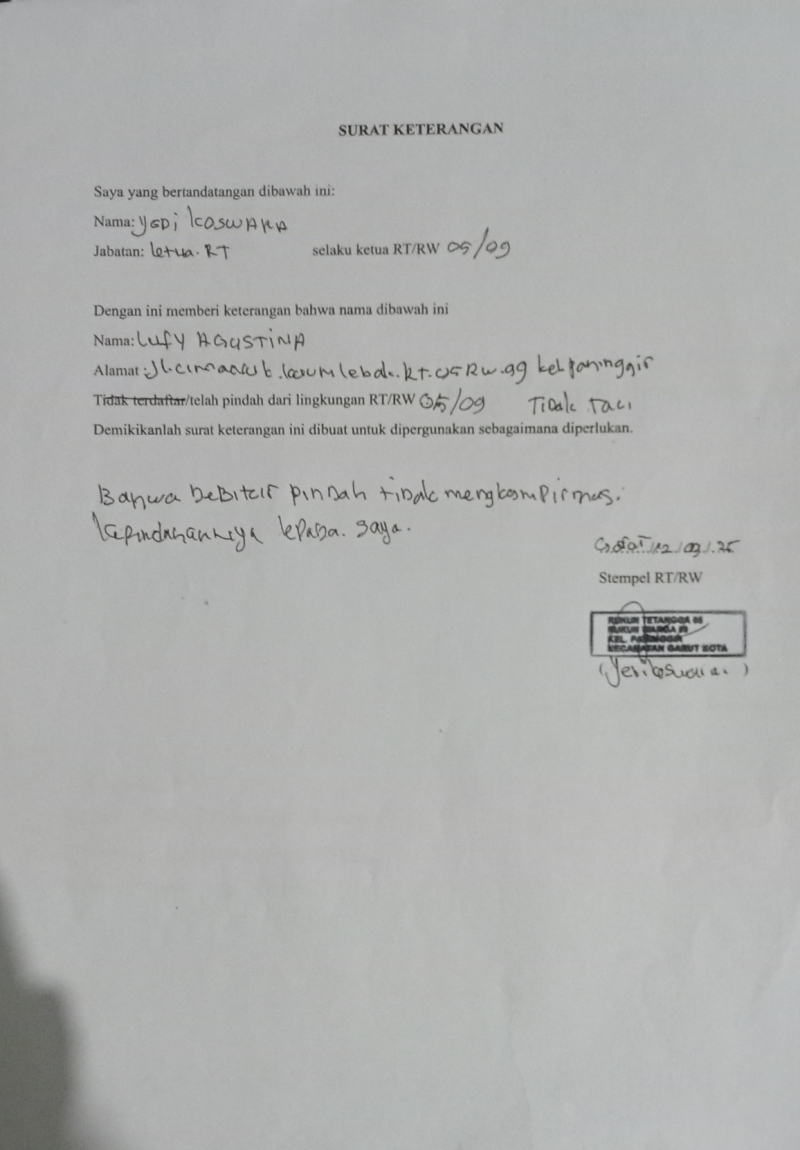 SURAT KETERANGAN
Saya yang bertandatangan dibawah ini:
Nama: YEDi KOSWARA
Jabatan: Ketua. RT selaku ketua RT/RW 05/09
Dengan ini memberi keterangan bahwa nama dibawah ini
Nama: Lufy AGUSTINA
Alamat : Jl. RT. 05 RW. 09 kel paninggir
Tidak terdaftar/telah pindah dari lingkungan RT/RW 05/09 Tidak
Demikikanlah surat keterangan ini dibuat untuk dipergunakan sebagaimana diperlukan.
Bahwa DeBitur pinDah tiDak mengkompirmas.
kepindahannya kepaDa. saya.
Garut 12/09/25
Stempel RT/RW
RUKUN TETANGGA 05
RUKUN WARGA 09
KEL. PANINGGIR
KECAMATAN GARUT KOTA
(Yedi koswara.)